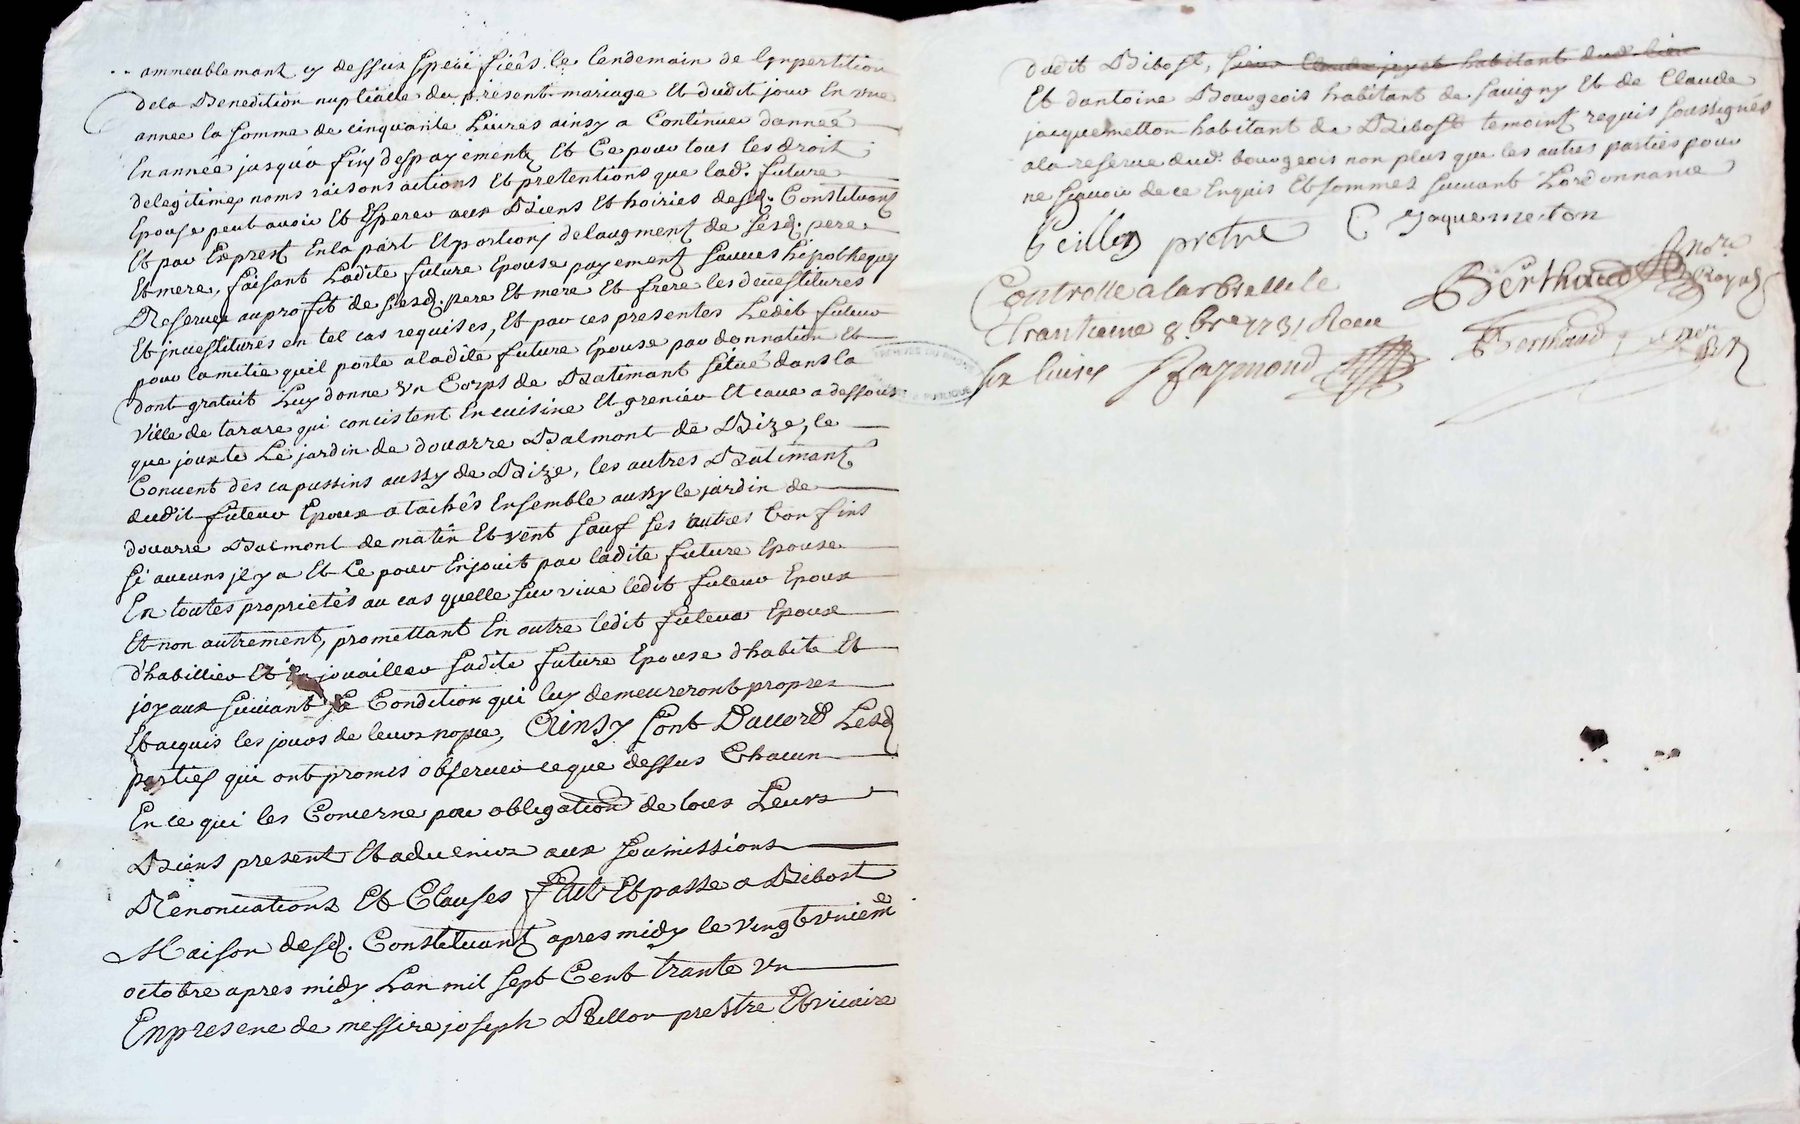 ammeublemant cy dessus speciffiéès le lendemain de l'inpertition
dela Benedition nuptialle du present mariage Et dudit jour En une
année la somme de cinquante Livres ainsy a Continuer dannée
En année jusqu'a fin despayements Et Ce pour tous les droits
delegitimes noms raisons actions Et pretentions que lad. future
Epouse peut avoir Et Esperer aux Biens Et hoiries desd. Constituants
Et par Exprest En la part Et portions delaugment de sesd. pere
Et mere, faisant Ladite future Epouse payements sauves hipotheques
Reservee au profit de sesd. pere Et mere Et frere les devestitures
Et jnvestitures en tel cas requises, Et par ces presentes Ledit futeur
pour lamitie quil porte aladite future Epouse par donnation Et
dont gratuit Luy donne vn Corps de Batimant situé dans la
Ville de tarare qui concistent En cuisine Et grenier Et cave a dessous
que jouxte Le jardin de douarre Dalmont de Bize, le
Convent des capussins aussy de Bize, les autres Batimants
dudit futeur Epoux atachés Ensemble aussy le jardin de
douarre Dalmont de matin Et vent sauf ses autres Confins
si aucuns jl y a Et Ce pour Enjouit par ladite future Epouse
En toutes proprietés au cas quelle survive ledit futeur Epoux
Et non autrement, promettant En outre ledit futeur Epoux
d'habillier Et Enjouailler sadite future Epouse d'habits Et
joyaux suivant sa Condition qui luy demeureront propres
Et acquis les jours de leurs nopce, Ainsy sont D'accord Lesd
parties qui ont promis observer ceque dessus Chacun
En ce qui les Concerne par obligation de tous Leurs
Biens present Et advenirs aux soumissions
Renonciations Et Clauses fait Et passe a Bibost
Maison desd. Constituants apres midy le vingt vniem
octobre apres midy Lan mil sept Cent trante vn
En presene de messire joseph Billon prestre Et vicaire
dudit Bibost, sieur Claude jey et habitant dud. lieu
Et dantoine Bourgeois habitant de savigny Et de Claude
jacquemetton habitant de Bibost temoints requis soussignés
ala reserve dud. bourgeois non plus que les autres parties pour
ne scavoir de ce Enquis Et sommes suivant Lordonnance
Beillon pretre C Jaquemeton
Berthaud no.re Royal
Controlle a larbresle le
trantieme 8.bre 1731 Receu
six livres Raymond
Berthaud